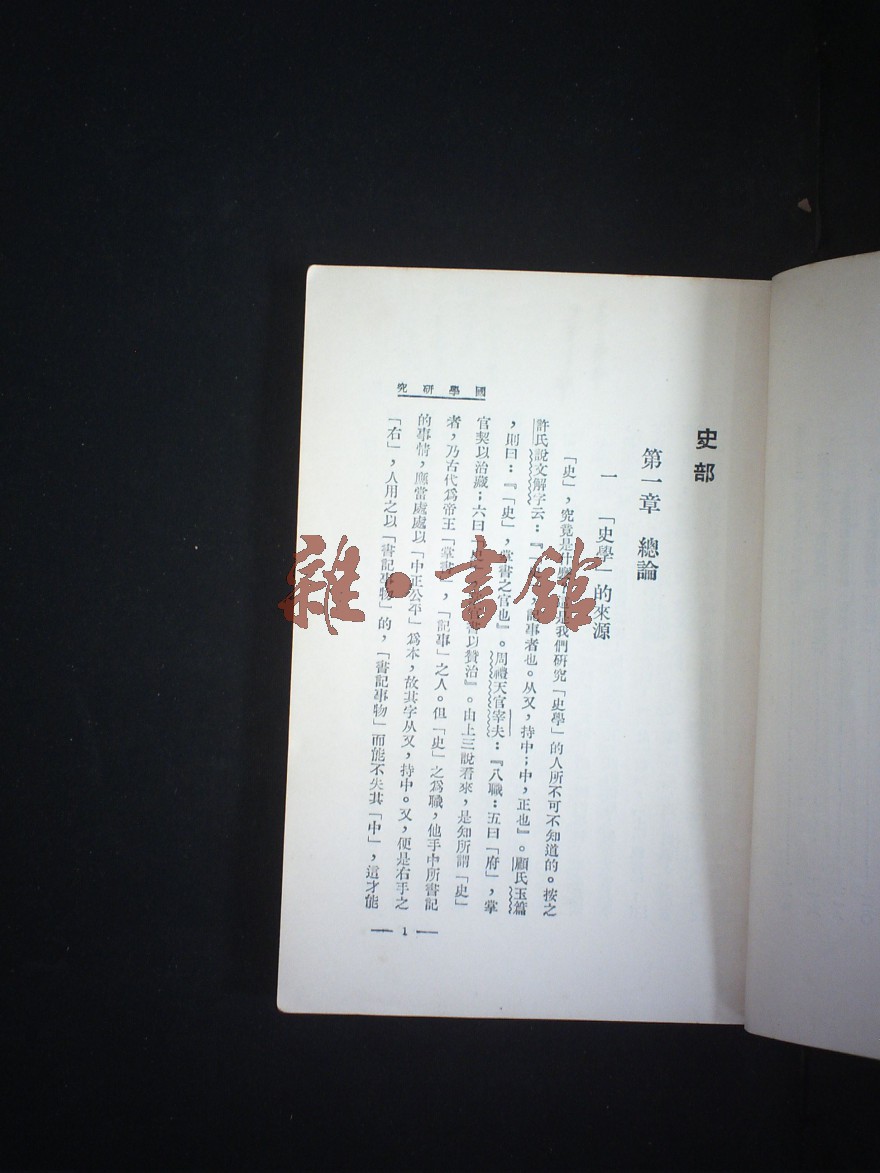 國學研究
史部
第一章 總論
一 「史學」的來源
「史」，究竟是什 我們研究「史學」的人所不可不知道的。按之
許氏說文解字云：『「史」，記事者也。从又，持中；中，正也』。顧氏玉篇
，則曰：『「史」，掌書之官也』。周禮天官宰夫：『八職：五曰「府」，掌
官契以治藏；六曰「史」， 書以贊治』。由上三說看來，是知所謂「史」
者，乃古代爲帝王「掌書」，「記事」之人。但「史」之爲職，他手中所書記
的事情，應當處處以「中正公平」爲本，故其字从又，持中。又，便是右手之
「右」，人用之以「書記事物」的，「書記事物」而能不失其「中」，這才能
— 1 —
雜·書館